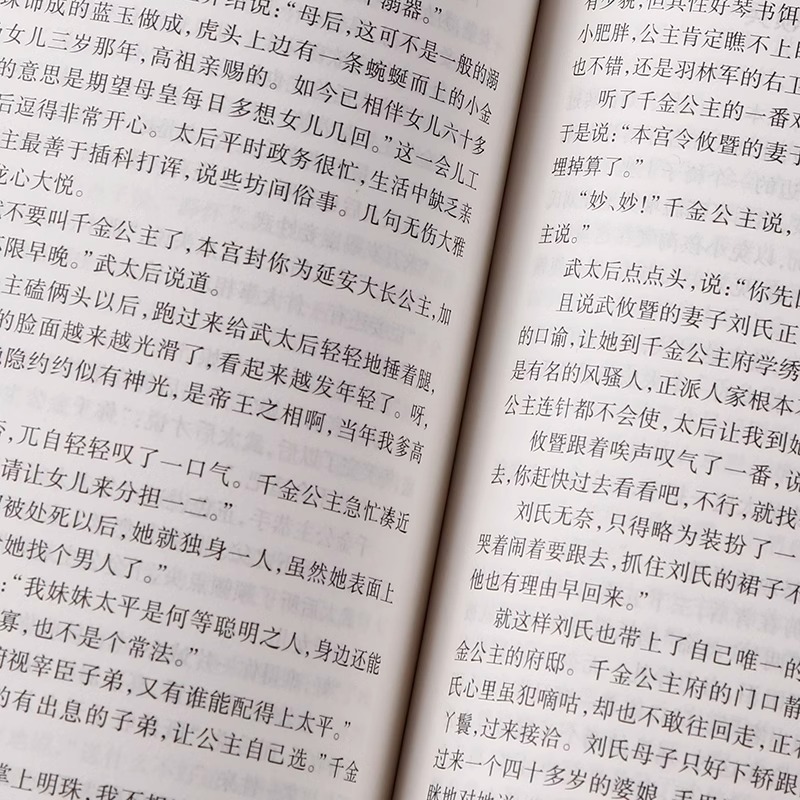 介绍说：“母后，这可不是一般的溺
饰成的蓝玉做成，虎头上边有一条蜿蜒而上的小金
女儿三岁那年，高祖亲赐的。如今已相伴女儿六十多
的意思是期望母皇每日多想女儿几回。”这一会儿工
后逗得非常开心。太后平时政务很忙，生活中缺乏亲
主最善于插科打诨，说些坊间俗事。几句无伤大雅
龙心大悦。
不要叫千金公主了，本宫封你为延安大长公主，加
不限早晚。”武太后说道。
主磕俩头以后，跑过来给武太后轻轻地捶着腿，
的脸面越来越光滑了，看起来越发年轻了。呀，
隐隐约约似有神光，是帝王之相啊，当年我爹高
兀自轻轻叹了一口气。千金公主急忙凑近
请让女儿来分担一二。”
被处死以后，她就独身一人，虽然她表面上
她找个男人了。”
：“我妹妹太平是何等聪明之人，身边还能
寡，也不是个常法。”
俯视宰臣子弟，又有谁能配得上太平。”
的有出息的子弟，让公主自己选。”千金
掌上明珠，我不
有岁貌，但其性好琴书饵
小肥胖，公主肯定瞧不上
也不错，还是羽林军的右卫
听了千金公主的一番
于是说：“本宫令攸暨的妻子
埋掉算了。”
“妙、妙！”千金公主说，
主说。”
武太后点点头，说：“你先
且说武攸暨的妻子刘氏正
的口谕，让她到千金公主府学绣
是有名的风骚人，正派人家根本
公主连针都不会使，太后让我到她
攸暨跟着唉声叹气了一番，说
去，你赶快过去看看吧，不行，就找
刘氏无奈，只得略为装扮了一
哭着闹着要跟去，抓住刘氏的裙子不
他也有理由早回来。”
就这样刘氏也带上了自己唯一的
金公主的府邸。千金公主府的门口静
氏心里虽犯嘀咕，却也不敢往回走，正
丫鬟，过来接洽。刘氏母子只好下轿跟
过来一个四十多岁的婆娘，手里
眯地对她说